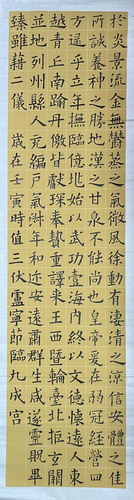 於炎景流金無鬱蒸之氣微風徐動有淒清之涼信安體之佳
所誠養神之勝地漢之甘泉不能尚也皇帝爰在弱冠經營四
方逮乎立年撫臨億兆始以武功壹海內終以文德懷遠人東
越青丘南踰丹徼皆獻琛奉贄重譯來王西暨輪臺北拒玄闕
並地列州縣人充編戶氣淑年和迩安遠肅群生咸遂靈貺畢
臻雖藉二儀 歲在壬寅時值三伏盧寧節臨九成宮